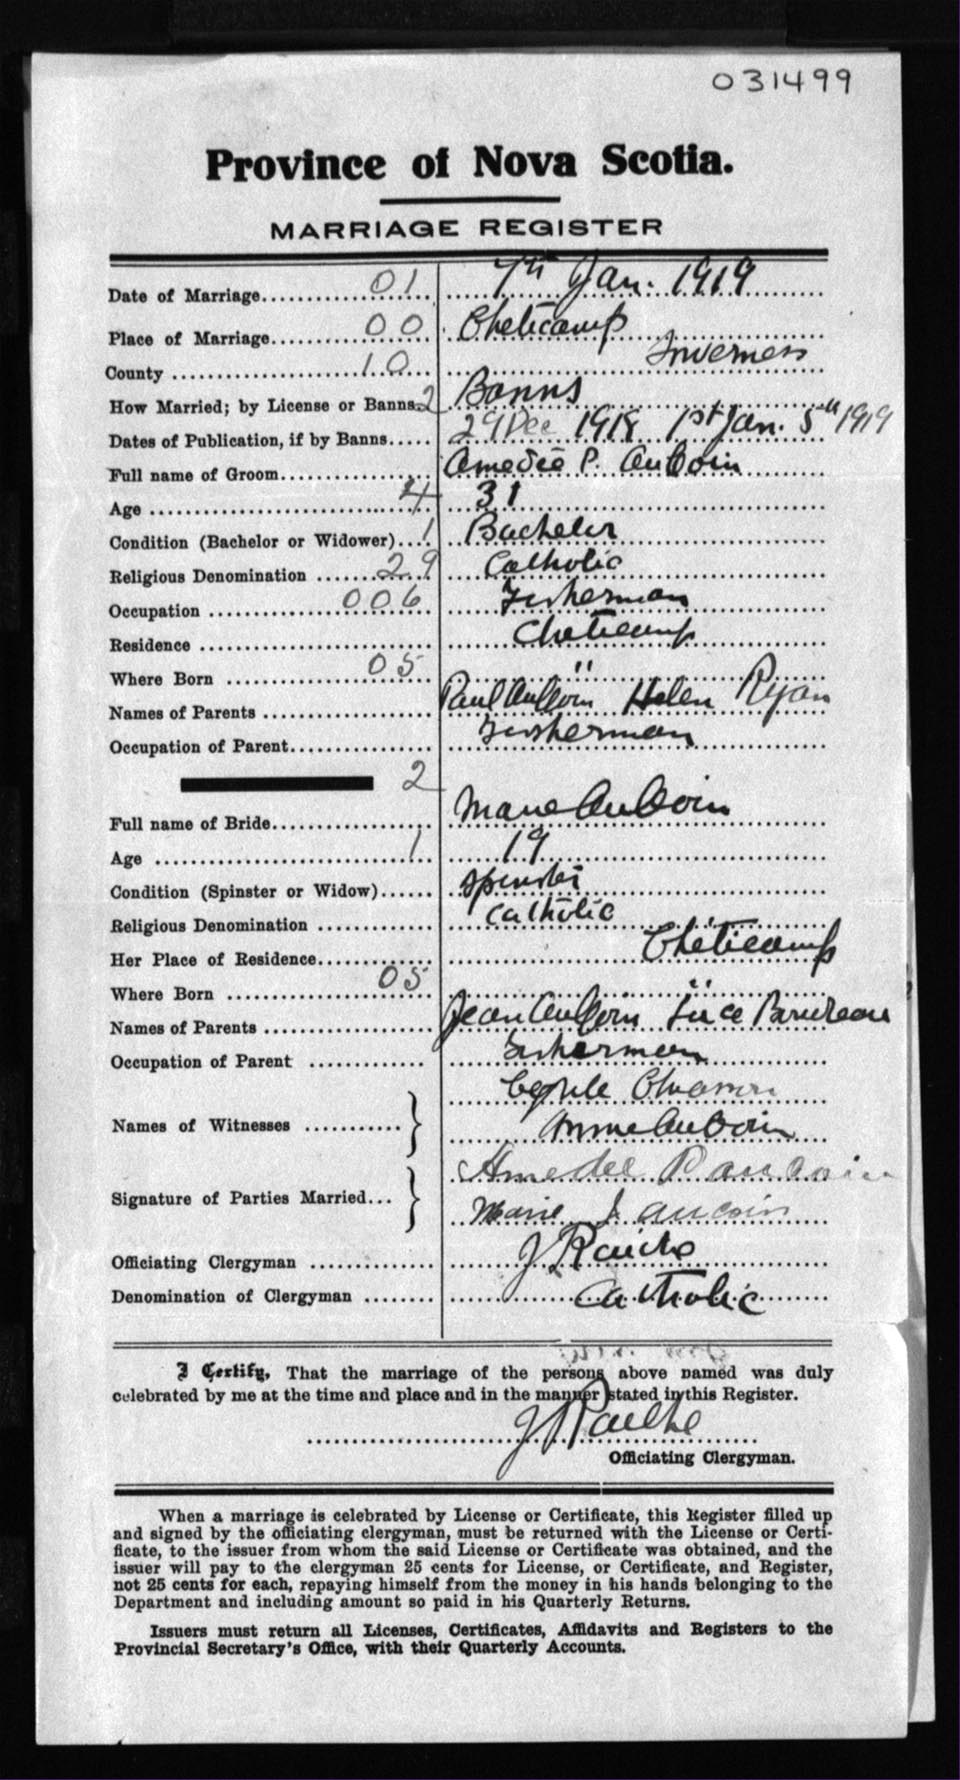 031499
Province of Nova Scotia.
MARRIAGE REGISTER
Date of Marriage 01 7th Jan. 1919
Place of Marriage 00 Cheticamp
County 10 Inverness
How Married; by License or Banns 2 Banns
Dates of Publication, if by Banns 29 Dec 1918 1st Jan. 5th 1919
Full name of Groom Amedée P. AuCoin
Age 4 31
Condition (Bachelor or Widower) 1 Bachelor
Religious Denomination 29 Catholic
Occupation 006 Fisherman
Residence Cheticamp
Where Born 05 "
Names of Parents Paul AuCoin Helen Ryan
Occupation of Parent Fisherman
2
Full name of Bride Marie AuCoin
Age 1 19
Condition (Spinster or Widow) Spinster
Religious Denomination Catholic
Her Place of Residence Chéticamp
Where Born 05 "
Names of Parents Jean AuCoin Luce
Occupation of Parent Fisherman
Names of Witnesses
AuCoin
Signature of Parties Married Amedee P aucoin
Marie J aucoin
Officiating Clergyman J
Denomination of Clergyman Catholic
I Certify, That the marriage of the persons above named was duly
celebrated by me at the time and place and in the manner stated in this Register.
J
Officiating Clergyman.
When a marriage is celebrated by License or Certificate, this Register filled up
and signed by the officiating clergyman, must be returned with the License or Certi-
ficate, to the issuer from whom the said License or Certificate was obtained, and the
issuer will pay to the clergyman 25 cents for License, or Certificate, and Register,
not 25 cents for each, repaying himself from the money in his hands belonging to the
Department and including amount so paid in his Quarterly Returns.
Issuers must return all Licenses, Certificates, Affidavits and Registers to the
Provincial Secretary's Office, with their Quarterly Accounts.